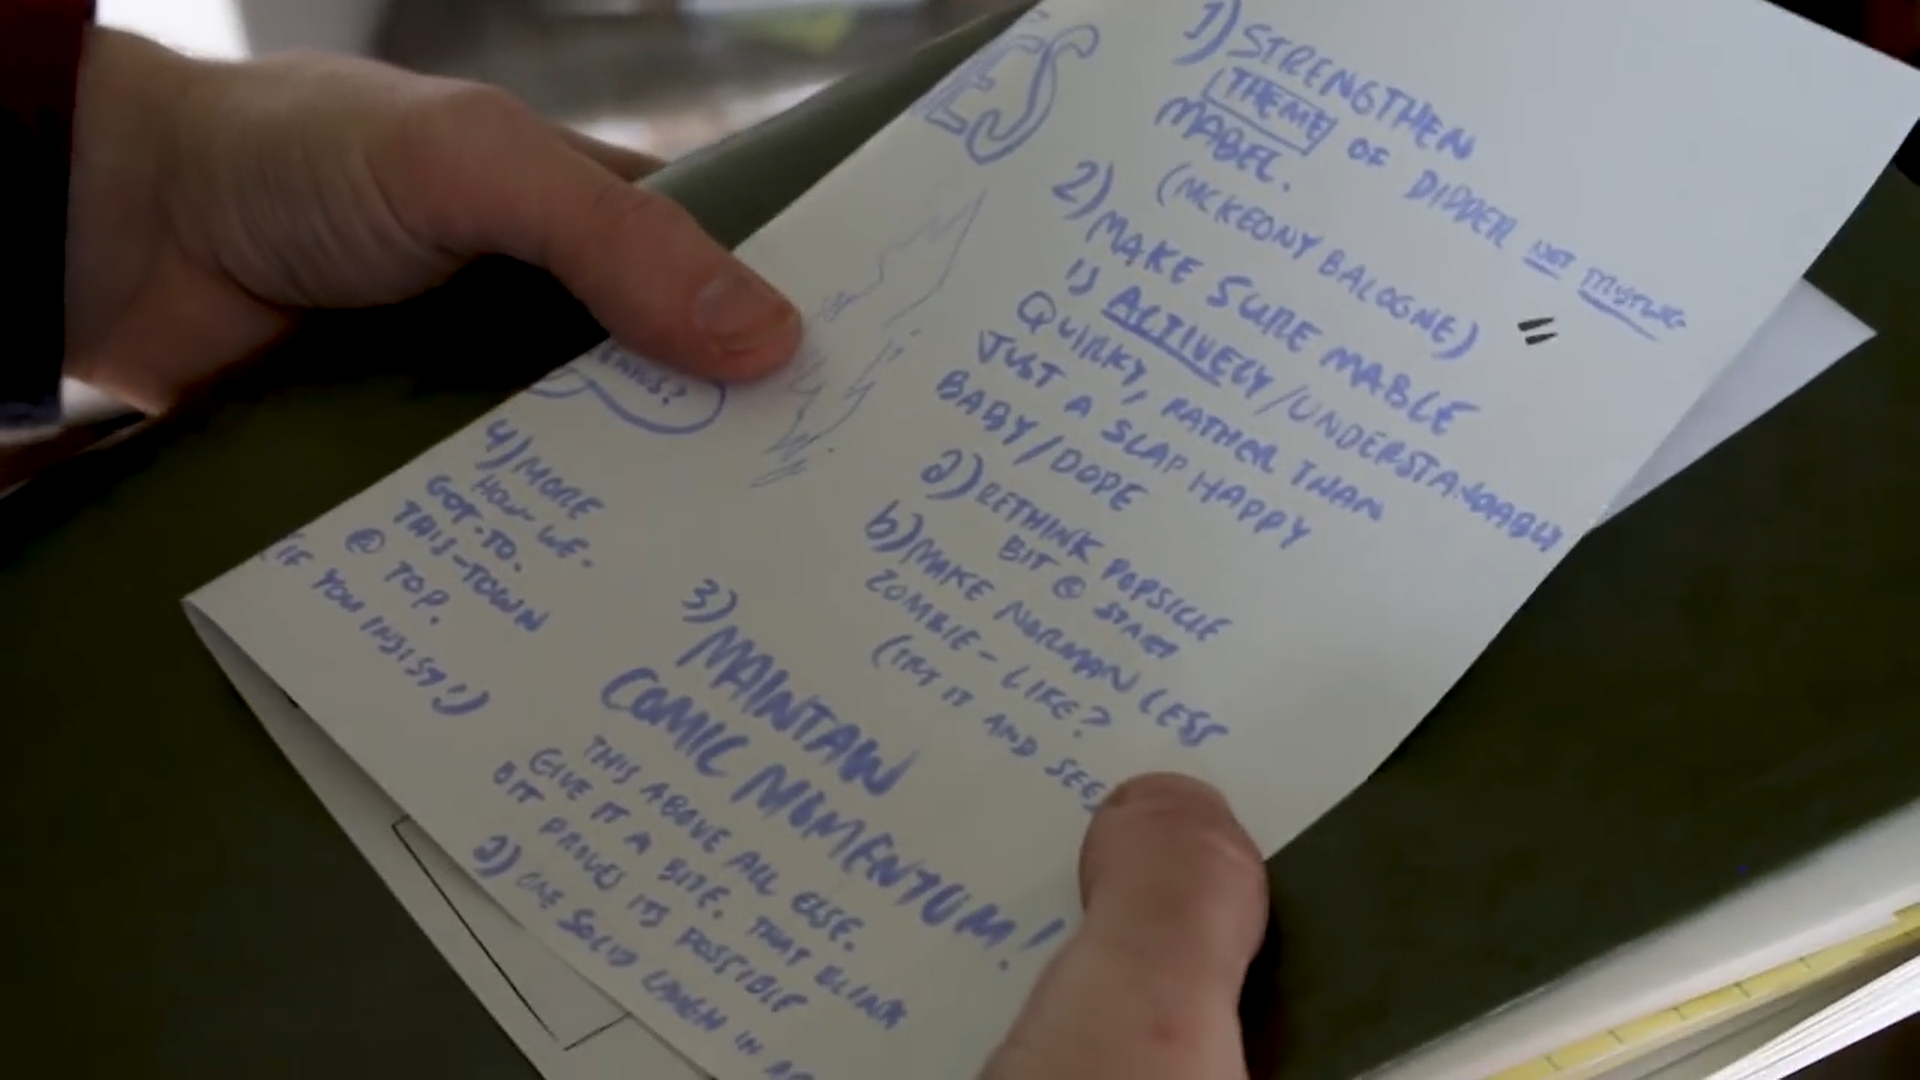 ES
1) STRENGTHEN
THEME OF DIPPER NOT TRUSTING
MABEL.
(MCKEONY BALOGNE)
2) MAKE SURE MABLE
IS ACTIVELY/UNDERSTANDABLY
QUIRKY, RATHER THAN
JUST A SLAP HAPPY
BABY/DOPE
a) RETHINK POPSICLE
BIT @ START
b) MAKE NORMAN LESS
ZOMBIE-LIKE?
(TRY IT AND SEE)
3)
MAINTAIN
COMIC MOMENTUM!
THIS ABOVE ALL ELSE.
GIVE IT A BITE. THAT BLINK
BIT PROVES ITS POSSIBLE
a) ONE SOLID LAUGH IN
4) MORE
HOW-WE-
GOT-TO-
THIS-TOWN
@ TOP.
(IF YOU INSIST!)